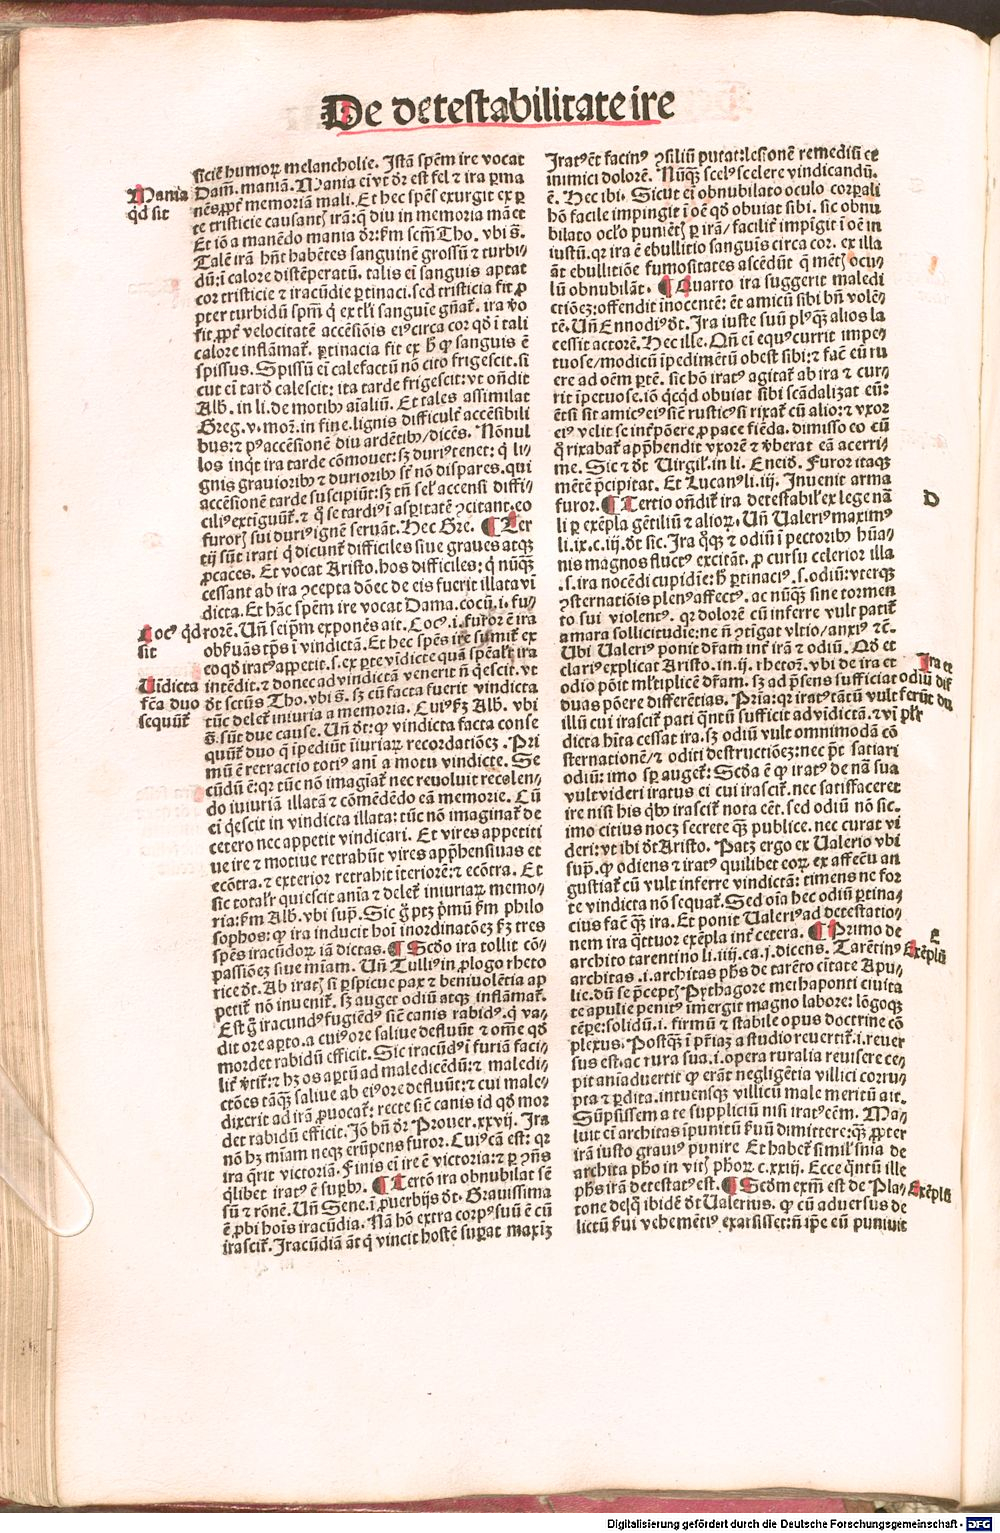 De detestabilitate ire
ficiẽt humorꝝ melancholie. Istã spẽm ire vocat
Dam̃. maniã. Mania eĩ vt dr̃ est fel ⁊ ira ꝑma
Mania
qd̃ sit
nẽs ꝓpt̃ memoriã mali. Et hec spẽs exurgit ex ꝑ
te tristicie causantꝭ irã: q̃ diu in memoria manet
Et iõ a manẽdo mania dr̃: fm̃ scm̃ Tho. vbi s̃.
Talẽ irã hñt habẽtes sanguinẽ grossũ ⁊ turbi-
dũ: i calore distẽperatũ. talis eĩ sanguis aptat
cor tristicie ⁊ iracũdie ꝑtinaci. sed tristicia fit ꝓ
pter turbidũ spm̃ q̃ ex tli sanguĩe gñat̃. ira v̾o
fit ꝓpt̃ velocitatẽ accẽsiõis eiꝰ circa cor qd̃ i tali
calore inflãmat̃. ꝑtinacia fit ex h̾ ꝙ sanguis ẽ
spissus. Spissũ eĩ calefactũ nõ cito frigescit. si
cut eĩ tard̾ calescit: ita tarde frigescit: vt oñdit
Alb̾. in li. de motibꝰ aĩaliũ. Et tales assimilat
Greg. v. mor̃. in fine. lignis difficult̃ accẽsibili
bus: ⁊ pꝰ accẽsionẽ diu ardẽtibꝰ/ dicẽs. Nõnul
los inq̃t ira tarde cõmouet: sꝫ duriꝰ tenet: q̃ li-
gnis grauioribꝰ ⁊ durioribꝰ sũt nõ dispares. qui
accẽsionẽ tarde suscipiũt: sꝫ tñ sel̾ accensi diffi-
ciliꝰ extiguũt̃. ⁊ q̃ se tardiꝰ i asꝑitatẽ ꝯcitant. eo
furorꝭ sui duriꝰ ignẽ seruãt. Hec Gre. ¶ Ter
tij sũt irati q̃ dicunt̃ difficiles siue graues atqꝫ
ꝓcaces. Et vocat Aristo. hos difficiles: q̃ nũqꝫ
cessant ab ira ꝯcepta dõec de eis fuerit illata vĩ
dicta. Et hãc spẽm ire vocat Dama. cocũ. i. fu-
Cocꝰ qd̃
sit
rorẽ. Uñ seip̃m exponẽs ait. Cocꝰ. i. furor ẽ ira
obẽuãs tp̃s i vindictã. Et hec spẽs ire sumit̃ ex
eo qd̾ iratꝰ appetit. s. ex ꝑte vidicte quã spẽalr̃ ira
Uĩdicta
fc̃a duo
sequũt̃
intẽdit. ⁊ donec ad vindictã venerit ñ q̾escit. vt
dt̃ sctũs Tho. vbi s̃. Sꝫ cũ facta fuerit vindicta
tũc delet̃ iniuria a memoria. Cuiꝰ fꝫ Alb̾. vbi
s̃. sũt due cause. Uñ dt̃: ꝙ vindicta facta conse
quũt̃ duo q̃ ĩpediũt ĩiuriarꝝ recordatiõeꝫ. Pri
mũ ẽ retractio totiꝰ ani̾ a motu vindicte. Se
cũdũ ẽ: qꝛ tũc nõ imaginat̃ nec reuoluit recolen-
do iniuriã illatã ⁊ cõmẽdẽdo eã memorie. Cũ
eĩ q̾escit in vindicta illata: tũc nõ imaginat̃ de
cetero nec appetit vindicari. Et vires appetiti
ue ire ⁊ motiue retrahũt vires app̃hensiuas et
ecõtra. ⁊ exterior retrahit ĩteriorẽ: ⁊ ecõtra. Et
sic totalr̃ quiescit anĩa ⁊ delet̃ iniuriarꝝ memo-
ria: fm̃ Alb̾. vbi sup̃. Sic g̾ ptꝫ p̾mũ fm̃ philo
sophos: ꝙ ira inducit hoĩ inordinatõeꝫ fꝫ tres
spẽs iracũdorꝝ iã dictas. ¶ Scd̾o ira tollit cõ-
passiõeꝫ siue mĩam. Uñ Tulliꝰ in ꝓlogo rheto
rice dt̃. Ab iratꝭ si ꝑspicue pax ⁊ beniuolẽtia ap
petit̃ nõ inuenit̃. Sꝫ auget odiũ atqꝫ inflãmat̃.
Est g̾ iracundꝰ fugiẽdꝰ siẽ canis rabidꝰ. q̃ va-
dit ore aꝑto. a cuiꝰ ore saliue defluũt ⁊ om̃e qd̾
mordet rabidũ efficit. Sic iracũdꝰ i furiã faci-
lit̃ v̾tit̃: ⁊ hꝫ os aꝑtũ ad maledicẽdũ: ⁊ maledi-
ctões tãqꝫ saliue ab eiꝰ ore defluũt: ⁊ cui male-
dixerit ad irã ꝓuocat̃: recte siẽ canis id qd̾ mor
det rabidũ efficit. Iõ bñ dr̃ Prouer. xxvij. Ira
nõ hꝫ mĩam neqꝫ erũpens furor. Cuiꝰ cã est: qꝛ
ira q̾rit victoriã. Finis eĩ ire ẽ victoria: ⁊ ꝑ ꝯñs
q̾libet iratꝰ ẽ suꝑbꝰ. ¶ Tertõ ira obnubilat sẽ
sũ ⁊ rõnẽ. Uñ Sene. ĩ ꝓuerbijs dt̃. Grauissima
ẽ ꝓbi hoĩs iracũdia. Nã hõ extra corpꝰ suũ ẽ cũ
irascit̃. Iracũdiã ãt q̃ vincit hostẽ suꝑat maxĩꝫ
Iratꝰ ẽt facinꝰ ꝯsiliũ putat: lesionẽ remediũ ee
inimici dolorẽ. Nũqꝫ scelꝰ scelere vindicandũ.
ẽ. Hec ibi. Sicut eĩ obnubilato oculo corꝑali
hõ facile impingit i oẽ qd̾ obuiat sibi. sic obnu
bilato oclo puniẽtꝭ ꝑ irã/ facilit̃ impĩgit i oẽ in
iustũ. qꝛ ira ẽ ebullitio sanguĩs circa cor. ex illa
ãt ebullitiõe fumositates ascẽdũt q̃ mẽtꝭ ocu-
lũ obnubilãt. ¶ Quarto ira suggerit maledi
ctiõeꝫ: offendit inocentẽ: ẽt amicũ sibi bñ volẽ-
tẽ. Uñ Ennodiꝰ dt̃. Ira iuste suũ plꝰqꝫ alios la
cessit actorẽ. Hec ille. Qñ eĩ equꝰ currit impe-
tuose/ modicũ ĩpedimẽtũ obest sibi: ⁊ faẽ eũ ru
ere ad oẽm ꝑtẽ. sic hõ iratꝰ agitat̃ ab ira ⁊ cur-
rit ĩpetuose. iõ qcq̃d obuiat sibi scãdalizat eũ:
ẽtsi sit amicꝰ eiꝰ siẽ rusticꝰ si rixat̃ cũ alio: ⁊ vxor
eiꝰ velit se int̃põere ꝓ pace fiẽda. dimisso eo cũ
q̃ rixabat̃ app̃hendit vxorẽ ⁊ v̾berat eã acerri-
me. Sic ⁊ dt̃ Virgil̾. in li. Eneid̾. Furor itaqꝫ
mẽtẽ p̃cipitat. Et Lucanꝰ li. iij. Inuenit arma
furor. ¶ Tertio oñdit̃ ira detestabil̾ ex lege nã
D
li ꝑ exẽpla gẽtiliũ ⁊ aliorꝝ. Uñ Ualeriꝰ maximꝰ
li. ix. c. iij. dt̃ sic. Ira q̾qꝫ ⁊ odiũ i pectoribꝰ hũa-
nis magnos fluctꝰ excitãt. ꝓ cursu celerior illa
. s. ira nocẽdi cupidĩe: h̾ ꝑtinaciꝰ. s. odiũ: vterqꝫ
ꝯsternatiõis plenꝰ affectꝰ. ac nũqꝫ sine tormen
to sui violentꝰ. qꝛ dolorẽ cũ inferre vult patit̃
amara sollicitudie: ne ñ ꝯtigat vltio/ anxiꝰ ⁊c̃.
Ubi Ualeriꝰ ponit dr̃am int̃ irã ⁊ odiũ. Qd̾ et
clariꝰ explicat Aristo. in. ij. rhetor̃. vbi de ira et
Ira et
odiũ dif
ferũt du
plr̃
odio põit ml̾tiplicẽ dr̃am. sꝫ ad p̃sens sufficiat
duas põere differẽtias. Pria: qꝛ iratꝰ tãtũ vult
illũ cui irascit̃ pati q̃ntũ sufficit ad vidictã. ⁊ vĩ
dicta hĩta cessat ira. sꝫ odiũ vult omnimodã cõ
sternationẽ/ ⁊ oditi destructiõeꝫ: nec p̃t satiari
odiũ: imo sp̃ auget̃: Scd̾a ẽ ꝙ iratꝰ de nã sua
vult videri iratus ei cui irascit̃. nec satisfaceret
ire nisi his qbꝰ irascit̃ nota eẽt. sed odiũ nõ sic.
imo citius nocꝫ secrete qꝫ publice. nec curat vi
deri: vt ibi dt̃ Aristo. Patꝫ ergo ex Ualerio vbi
sup̃. ꝙ odiens ⁊ iratꝰ quilibet eorꝝ ex affectu an
gustiat̃ cũ vult inferre vindictã: timens ne for
te vindicta nõ sequat̃. Sed oĩa hec odiũ ꝑtina-
cius faẽt qꝫ ira. Et ponit Ualeriꝰ ad detestatio-
nem ira q̾ttuor exẽpla int̃ cetera. ¶ Primo de
E
Exẽplũ
archito tarentino li. iiij. ca. j. dicens. Tarẽtinꝰ
architas. i. architas phs̃ de tarẽto citate Apu-
lie. dũ se p̃ceptꝭ Pythagore methaponti ciuita
te apulie penitꝰ imergit magno labore: lõgoqꝫ
tẽpe: solidũ. i. firmũ ⁊ stabile opus doctrine cõ
plexus. Postqꝫ i p̃riaꝫ a studio reuertit̃. i. reuer
sus est. ac rura sua. i. opera ruralia reuisere ce-
pit aniaduertit ꝙ erãt negligẽtia villici corru-
pta ⁊ ꝑdita. intuensqꝫ villicũ male meritũ ait.
Sũpsissem a te suppliciũ nisi iratꝰ eẽm. Ma-
luit eĩ architas ĩpunitũ fuũ dimittere: qꝫ ꝓpter
irã iusto grauiꝰ punire Et habet̃ simil̾ s̃nia de
archita pho in vitꝭ phorꝝ c. xxiij. Ecce q̃ntũ ille
phs̃ irã detestatꝰ est. ¶ Scd̾m exm̃ est de Pla-
Exẽplũ
tone deq̃ ibidẽ dt̃ Ualerius. ꝙ cũ aduersus de
lictũ f̃ui vehemẽtiꝰ exarsisset: ñ ip̃e eũ puniuit
Digitalisierung gefördert durch die Deutsche Forschungsgemeinschaft - DFG